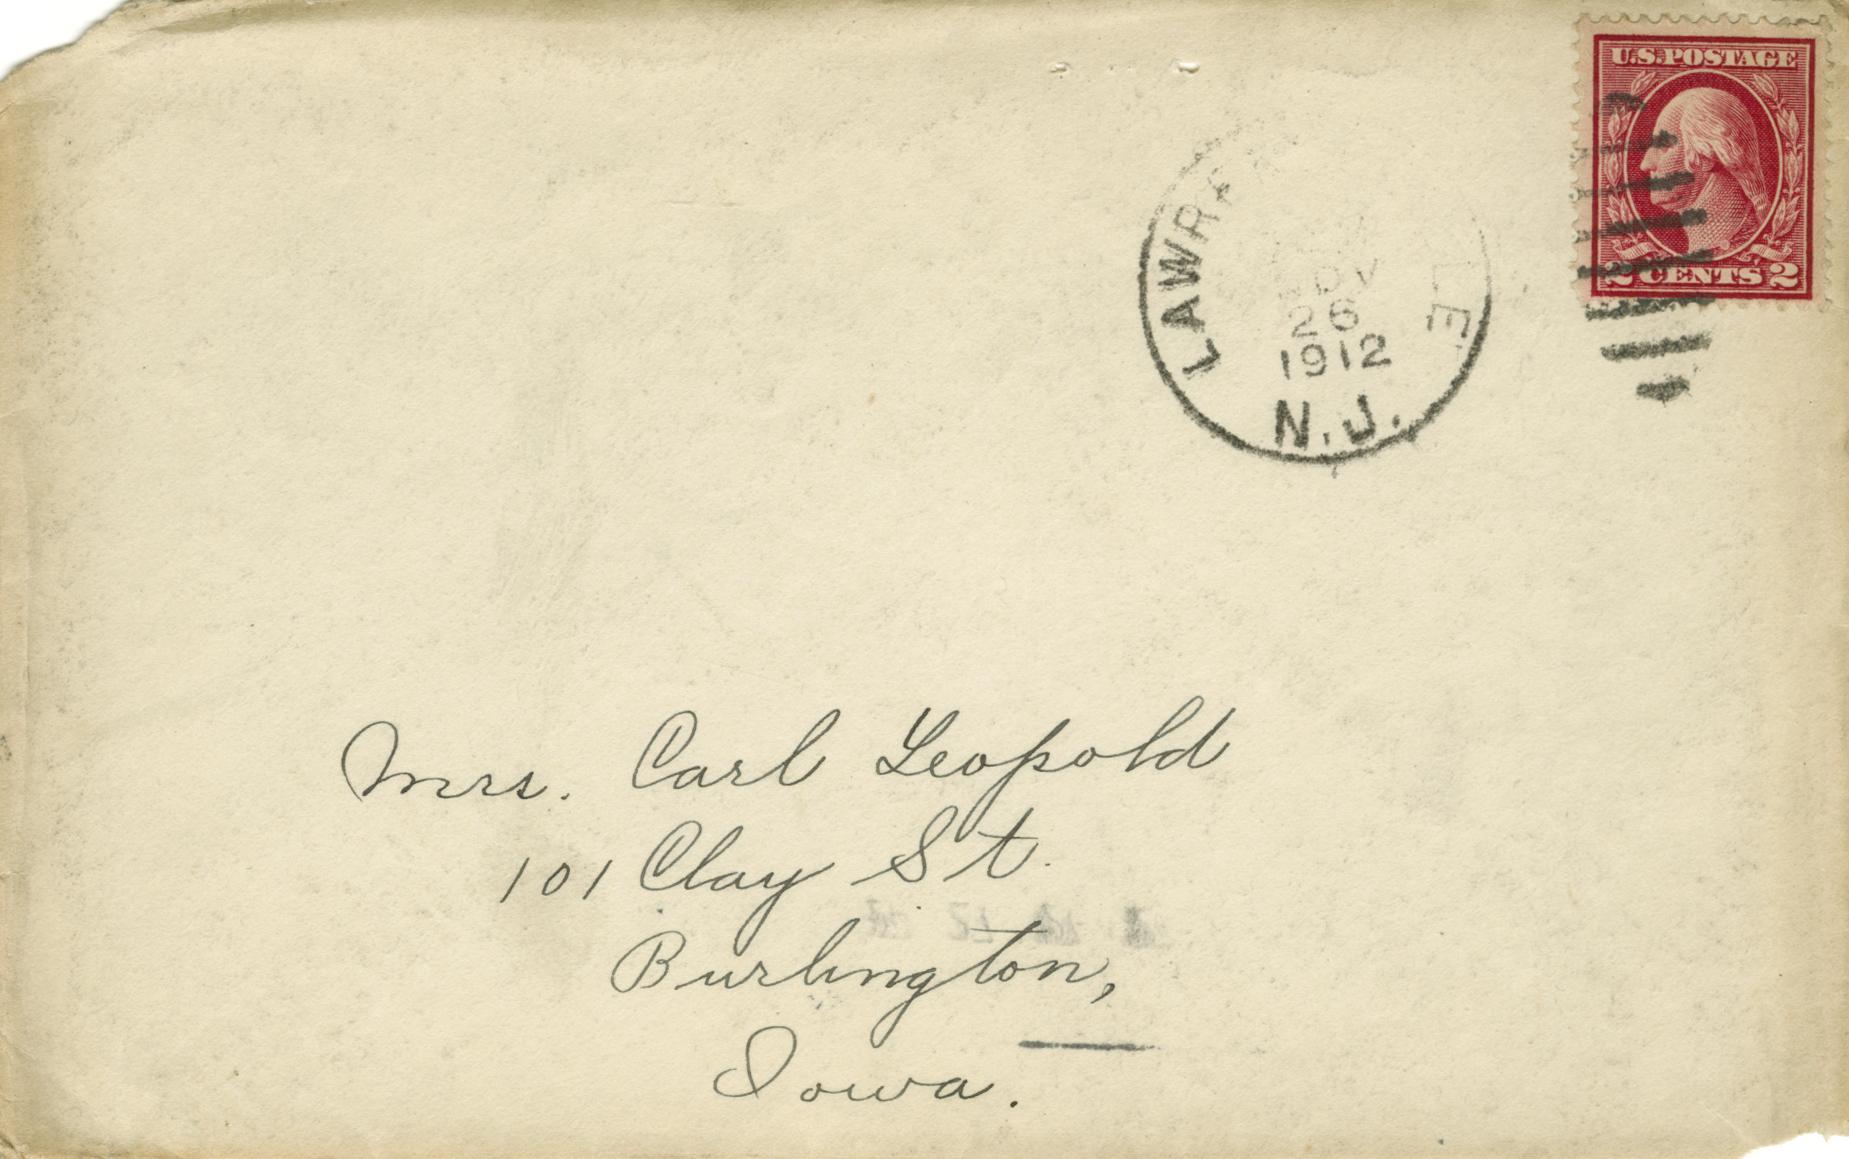 U.S. POSTAGE
2 CENTS 2
26
1912
N.J.
Mrs. Carl Leopold
101 Clay St.
Burlington,
Iowa.